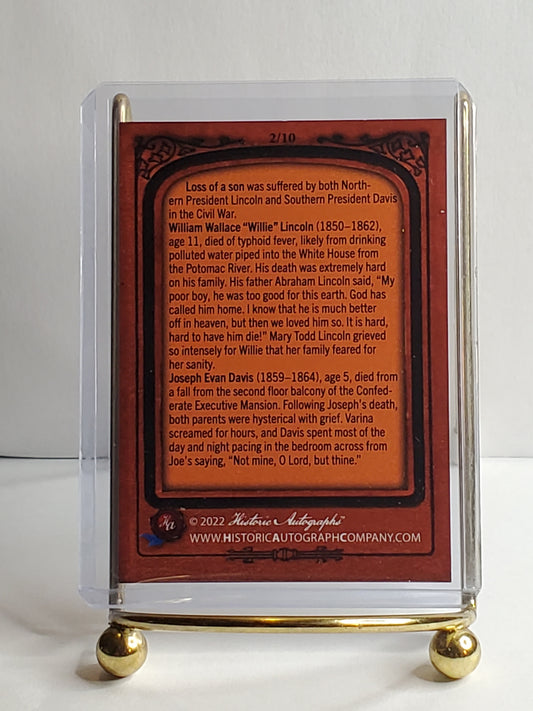 2/10
Loss of a son was suffered by both North-
ern President Lincoln and Southern President Davis
in the Civil War.
William Wallace "Willie" Lincoln (1850–1862),
age 11, died of typhoid fever, likely from drinking
polluted water piped into the White House from
the Potomac River. His death was extremely hard
on his family. His father Abraham Lincoln said, "My
poor boy, he was too good for this earth. God has
called him home. I know that he is much better
off in heaven, but then we loved him so. It is hard,
hard to have him die!" Mary Todd Lincoln grieved
so intensely for Willie that her family feared for
her sanity.
Joseph Evan Davis (1859–1864), age 5, died from
a fall from the second floor balcony of the Confed-
erate Executive Mansion. Following Joseph's death,
both parents were hysterical with grief. Varina
screamed for hours, and Davis spent most of the
day and night pacing in the bedroom across from
Joe's saying, "Not mine, O Lord, but thine."
HA © 2022 Historic Autographs™
WWW.HISTORICAUTOGRAPHCOMPANY.COM